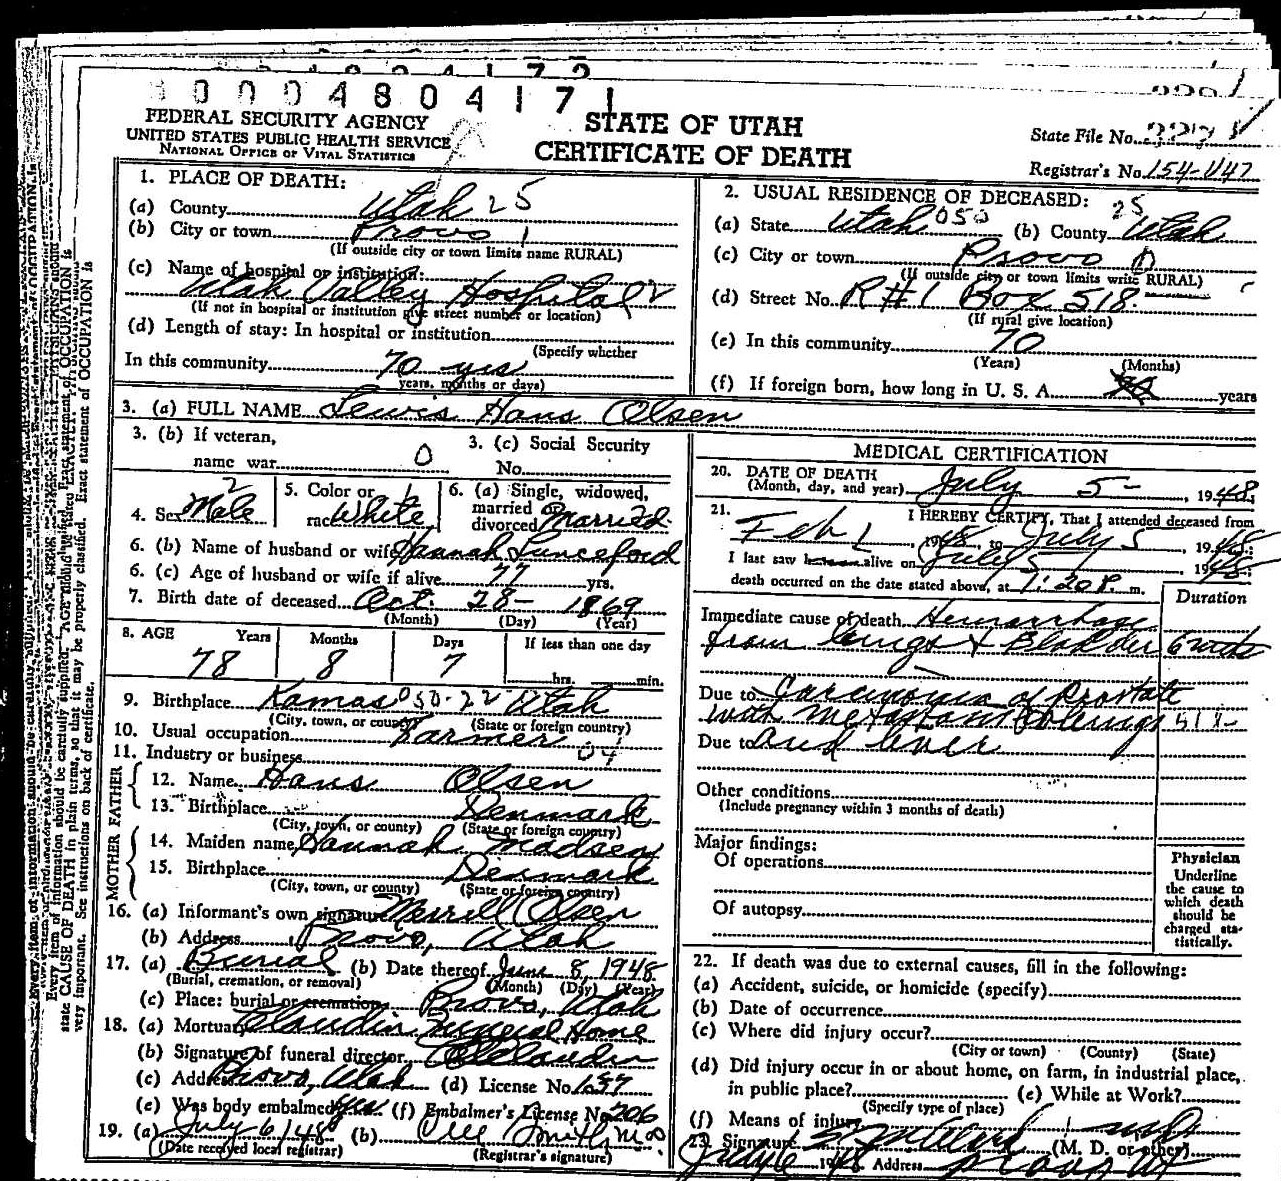 0004804171
FEDERAL SECURITY AGENCY
UNITED STATES PUBLIC HEALTH SERVICE
NATIONAL OFFICE OF VITAL STATISTICS
STATE OF UTAH
CERTIFICATE OF DEATH
State File No.
Registrar's No. 154-1147
1. PLACE OF DEATH:
(a) County Utah 25
(b) City or town Provo 1
(If outside city or town limits name RURAL)
(c) Name of hospital or institution:
Utah Valley Hospital
(If not in hospital or institution give street number or location)
(d) Length of stay: In hospital or institution
(Specify whether
In this community 70 yrs
years, months or days)
2. USUAL RESIDENCE OF DECEASED:
(a) State Utah 050 (b) County Utah 25
(c) City or town Provo
(If outside city or town limits write RURAL)
(d) Street No. R#1 Box 518
(If rural give location)
(e) In this community 70
(Years) (Months)
(f) If foreign born, how long in U. S. A. years
3. (a) FULL NAME Lewis Hans Olsen
3. (b) If veteran,
name war 0
3. (c) Social Security
No.
4. Sex Male 2
5. Color or
race White 1
6. (a) Single, widowed,
married or
divorced Married
6. (b) Name of husband or wife Hannah Lunceford
6. (c) Age of husband or wife if alive 77 yrs.
7. Birth date of deceased Oct. 28- 1869
(Month) (Day) (Year)
8. AGE Years Months Days If less than one day
78 8 7 hrs. min.
9. Birthplace Kamas 050-22 Utah
(City, town, or county) (State or foreign country)
10. Usual occupation Farmer
11. Industry or business 04
FATHER
12. Name Hans Olsen
13. Birthplace Denmark
(City, town, or county) (State or foreign country)
MOTHER
14. Maiden name Hannah Madsen
15. Birthplace Denmark
(City, town, or county) (State or foreign country)
16. (a) Informant's own signature Merrill Olsen
(b) Address Provo, Utah
17. (a) Burial (b) Date thereof June 8, 1948
(Burial, cremation, or removal) (Month) (Day) (Year)
(c) Place: burial or cremation Provo, Utah
18. (a) Mortuary Claudin Funeral Home
(b) Signature of funeral director
(c) Address Provo, Utah (d) License No. 137
(e) Was body embalmed yes (f) Embalmer's License No. 206
19. (a) July 6/48 (b) Smith MD
(Date received local registrar) (Registrar's signature)
MEDICAL CERTIFICATION
20. DATE OF DEATH
(Month, day, and year) July 5-, 1948
21. I HEREBY CERTIFY, That I attended deceased from
Feb 1, 1948, to July 5, 1948
I last saw alive on July 5, 1948;
death occurred on the date stated above, at 1:20 P. m.
Duration
Immediate cause of death Hemorrhage
from lungs & Bladder 6 wks
Due to Carcinoma of Prostate
with metastasis to lungs
Due to and liver
Other conditions
(Include pregnancy within 3 months of death)
Major findings:
Of operations
Of autopsy
Physician
Underline
the cause to
which death
should be
charged sta-
tistically.
22. If death was due to external causes, fill in the following:
(a) Accident, suicide, or homicide (specify)
(b) Date of occurrence
(c) Where did injury occur?
(City or town) (County) (State)
(d) Did injury occur in or about home, on farm, in industrial place,
in public place? (e) While at Work?
(Specify type of place)
(f) Means of injury
23. Signature MD (M. D. or other)
July 6 1948 Address Provo Ut